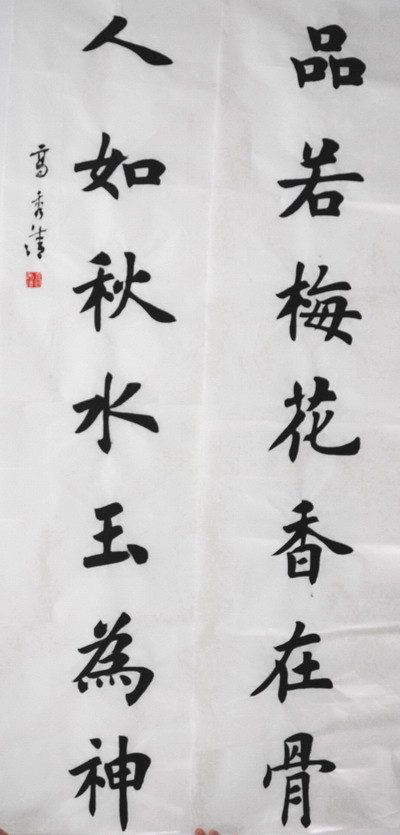 品若梅花香在骨
人如秋水玉為神
高秀清